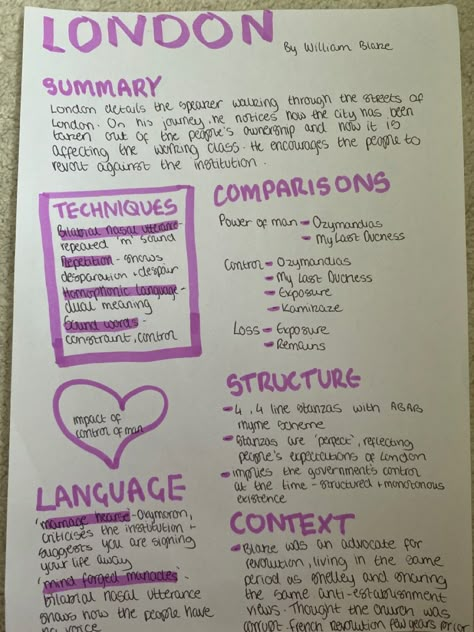 LONDON
By William Blake
SUMMARY
London details the speaker walking through the streets of
London. On his journey, he notices how the city has been
taken out of the people's ownership and how it is
affecting the working class. He encourages the people to
revolt against the institution.
TECHNIQUES
Bilabial nasal utterance -
repeated 'm' sound
Repetition - shows
desparation + despair
Homophonic language -
dual meaning
Sound words -
constraint, control
COMPARISONS
Power of man - Ozymandias
- My Last Duchess
Control - Ozymandias
- My Last Duchess
- Exposure
- Kamikaze
Loss - Exposure
- Remains
impact of
control of man
STRUCTURE
- 4, 4 line stanzas with ABAB
rhyme scheme
- Stanzas are 'perfect', reflecting
people's expectations of London
- implies the government's control
at the time - structured + monotonous
existence
LANGUAGE
'marriage hearse' - oxymoron,
criticises the institution +
suggests you are signing
your life away
'mind forged manacles' -
bilabial nasal utterance
shows how the people have
no voice
CONTEXT
- Blake was an advocate for
revolution, living in the same
period as Shelley and sharing
the same anti-establishment
views. Thought the church was
corrupt. French revolution few years prior